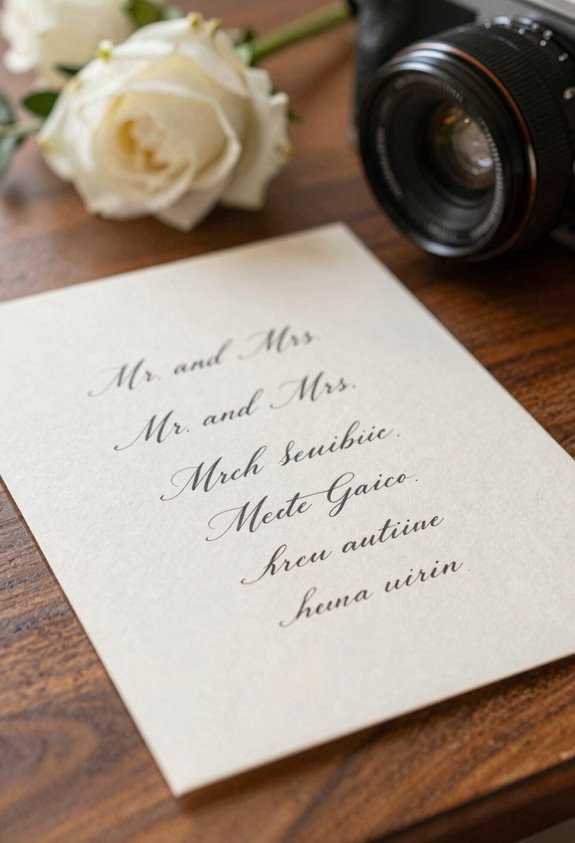 Mr. and Mrs.
Mr. and Mrs.
Mrch seuibiic.
Mecte Gaico.
hrcu autiine
heuna uirin